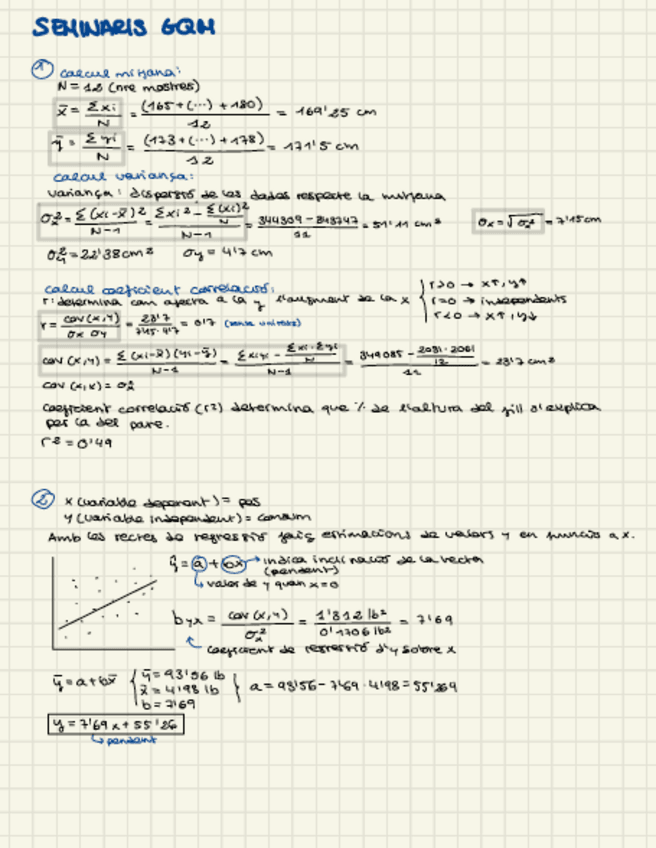 SEMINARIS GQM
① càlcul mitjana:
N = 12 (nre mostres)
x̄ = Σxi / N = (165 + (...) + 180) / 12 = 169'25 cm
ȳ = Σyi / N = (173 + (...) + 178) / 12 = 171'5 cm
càlcul variança:
variança: dispersió de les dades respecte la mitjana
σx² = Σ(xi - x̄)² / N-1 = Σxi² - Σ(xi)²/N / N-1 = 344309 - 343747 / 11 = 51'11 cm² σx = √σx² = 7'15 cm
σy² = 22'38 cm² σy = 4'7 cm
càlcul coeficient correlació:
r: determina com afecta a la y l'augment de la x { r>0 → x↑, y↑
r=0 → independents
r<0 → x↑, y↓
r = cov(x,y) / σx σy = 23'7 / 7'15·4'7 = 0'7 (sense unitats)
cov(x,y) = Σ(xi - x̄)(yi - ȳ) / N-1 = Σxiyi - Σxi·Σyi/N / N-1 = 349085 - 2031·2061/12 / 11 = 23'7 cm²
cov(x,x) = σx²
Coeficient correlació (r²) determina que % de l'altura del fill s'explica
per la del pare.
r² = 0'49
② x (variable dependent) = pes
y (variable independent) = consum
Amb les rectes de regressió faig estimacions de valors y en funció a x.
ŷ = a + bx → indica inclinació de la recta
(pendent)
↳ valor de y quan x=0
byx = cov(x,y) / σx² = 1'312 lb² / 0'1706 lb² = 7'69
↖ coeficient de regressió d'y sobre x
ȳ = a + bx̄ { ȳ = 93'56 lb
x̄ = 4'98 lb
b = 7'69 } a = 93'56 - 7'69 · 4'98 = 55'269
y = 7'69x + 55'26
↳ pendent